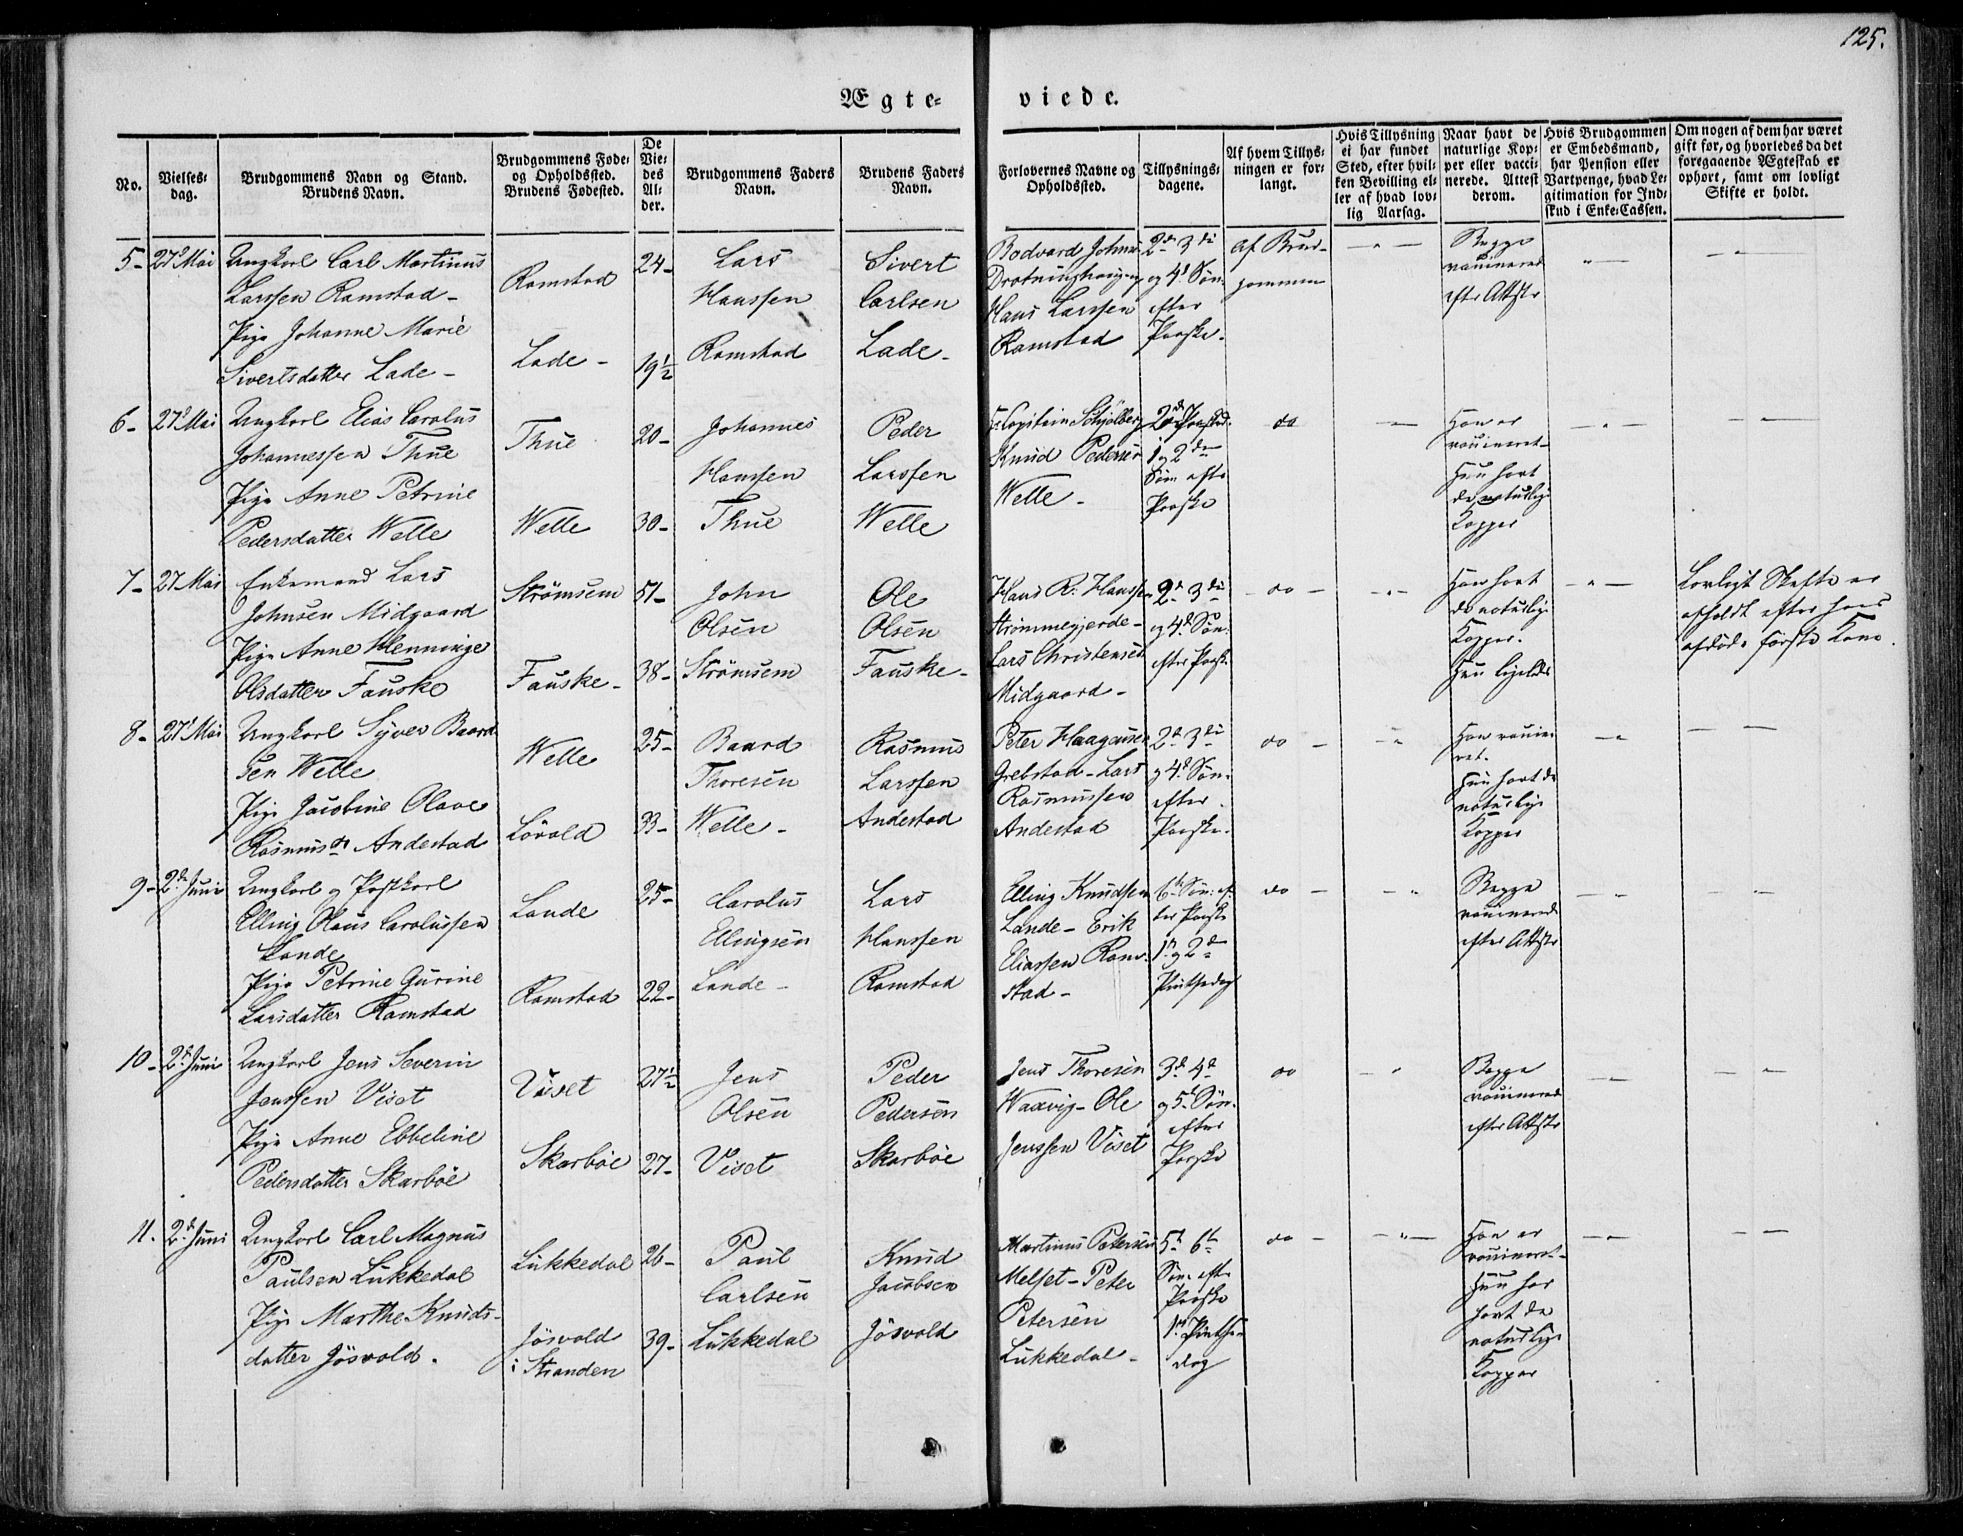 125.
Ægte-
viede.
No.
Vielses-
dag.
Brudgommens Navn og Stand.
Brudens Navn.
Brudgommens Føde-
og Opholdssted.
Brudens Fødested.
De
Vie-
des
Al-
der.
Brudgommens Faders
Navn.
Brudens Faders
Navn.
Forlovernes Navne og
Opholdssted.
Tillysnings-
dagene.
Af hvem Tillys-
ningen er for-
langt.
Hvis Tillysning
ei har fundet
Sted, efter hvil-
ken Bevilling el-
ler af hvad lov-
lig Aarsag.
Naar havt de
naturlige Kop-
per eller vacci-
nerede. Attest
derom.
Hvis Brudgommen
er Embedsmand,
har Pension eller
Vartpenge, hvad Le-
gitimation for Ind-
skud i Enke-Cassen.
Om nogen af dem har været
gift før, og hvorledes da det
foregaaende Ægteskab er
ophørt, samt om lovligt
Skifte er holdt.
5- 27d Mai
Ungkarl Carl Martinus
Larssen Ramstad-
Pige Johanne Marie
Sivertsdatter Lade-
Ramstad
Lade-
24-
19½
Lars
Hanssen
Ramstad
Sivert
Carlsen
Lade-
Bodvard Johns.
Drotninghaugen og
Hans Larssen
Ramstad
2d 3di
og 4d Søn.
efter
Paaske.
af Brud-
gommen
Begge
vaccinerede
efter Attester
6- 27d Mai
Ungkarl Elias Carolus
Johannessen Thue
Pige Anne Petrine
Pedersdatter Welle
Thue
Welle
20-
30-
Johannes
Hanssen
Thue
Peder
Larssen
Welle
Hr Capitain Schjølberg
Knud Pedersen
Welle-
2den Paaskd.
1 og 2den
Søn. efter
Paaske
do
Han er
vaccineret-
Hun havt
de naturlige
Kopper
7- 27 Mai
Enkemand Lars
Johnsen Midgaard
Pige Anne Henninge
Olsdatter Fauske
Strømsem
Fauske-
51-
38-
John
Olsen
Strømsem
Ole
Olsen
Fauske-
Hans R. Hanssen
Strømmegjerde-
Lars Christensen
Midgaard-
2d 3di
og 4d Søn.
efter Paaske
do
Han havt
de naturlige
Kopper.
Hun ligeledes
Lovligt Skifte er
afholdt efter hans
afdøde første Kone.
8- 27d Mai
Ungkarl Syver Baard-
sen Welle
Pige Jacobine Olave
Rasmusdr Andestad
Welle
Løvold
25-
33-
Baard
Thoresen
Welle-
Rasmus
Larssen
Andestad
Peter Haagensen
Grebstad- Lars
Rasmussen
Andestad
2d 3di
og 4d Søn.
efter
Paaske.
do
Han vaccine-
ret.
Hun havt de
naturlige
Kopper
9- 2den Juni
Ungkarl og Postkarl
Elling Olaus Carolussen
Lande
Pige Petrine Gurine
Larsdatter Ramstad
Lande
Ramstad
25-
22-
Carolus
Ellingsen
Lande-
Lars
Hanssen
Ramstad
Elling Knudsen
Lande- Erik
Eliassen Ram-
stad-
6te Søn. ef-
ter Paaske
1n og 2den
Pintsedag
do
Begge
vaccinerede
efter Attester
10- 2d Juni
Ungkarl Jens Severin
Jenssen Viset
Pige Anne Ebbeline
Pedersdatter Skarbøe
Viset
Skarbøe
27½
27-
Jens
Olsen
Viset
Peder
Pedersen
Skarbøe
Jens Thoresen
Waavig- Ole
Jenssen Viset
3d 4d
og 5t Søn.
efter
Paaske
do
Begge
vaccinerede
efter Attester
11. 2d Juni
Ungkarl Carl Magnus
Paulsen Lukkedal
Pige Marthe Knuds-
datter Jøsvold.
Lukkedal
Jøsvold
i Stranden
26-
39-
Paul
Carlsen
Lukkedal
Knud
Jacobsen
Jøsvold
Martinus Petersen
Melset- Peter
Petersen
Lukkedal-
5t 6te
Søn. efter
Paaske
1n Pintse-
dag
do
Han er
vaccineret-
Hun har
havt de
naturlige
Kopper